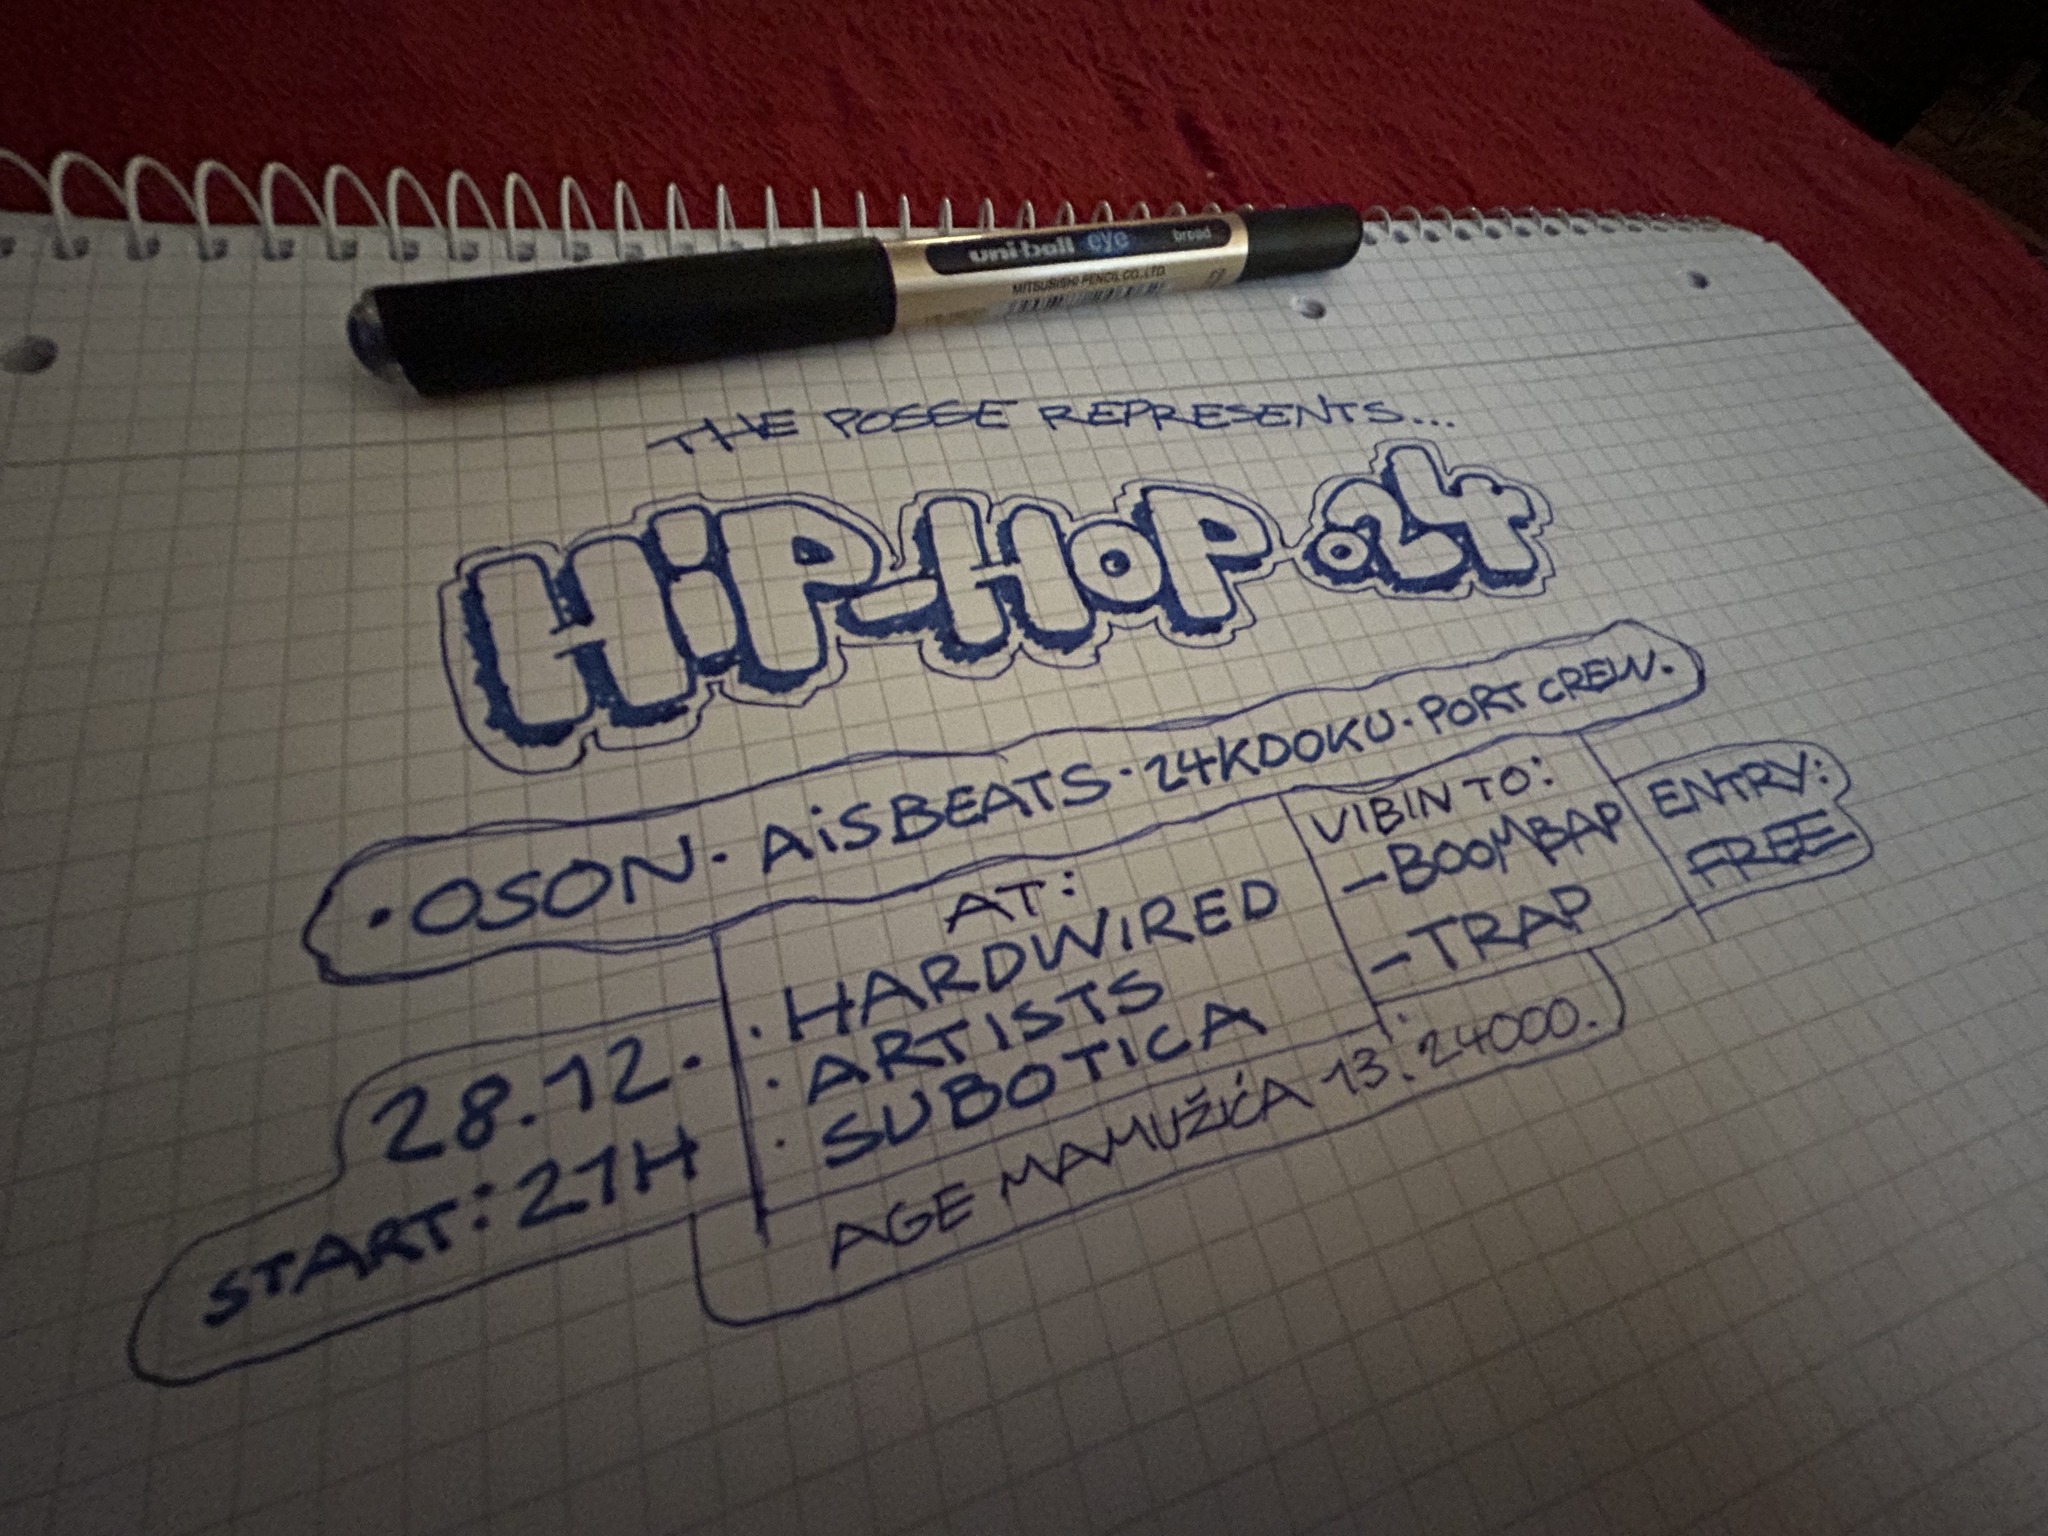 uni-ball eye broad
MITSUBISHI PENCIL CO., LTD.
THE POSSE REPRESENTS...
HiP-HOP 024
· OSON · AiSBEATS · 24KDOKU · PORT CREW.
28.12.
START: 21H
AT:
· HARDWIRED
· ARTISTS
· SUBOTICA
VIBIN TO:
- BOOMBAP
- TRAP
ENTRY:
FREE
AGE MAMUŽIĆA 13. 24000.